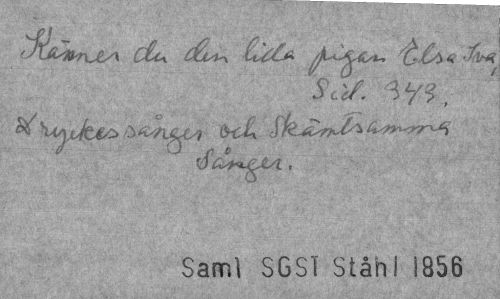 Känner du den lilla pigan Elsa Iva,
Sid. 343.
Dryckessånger och Skämtsamma
Sånger.
Saml SGST Ståhl 1856